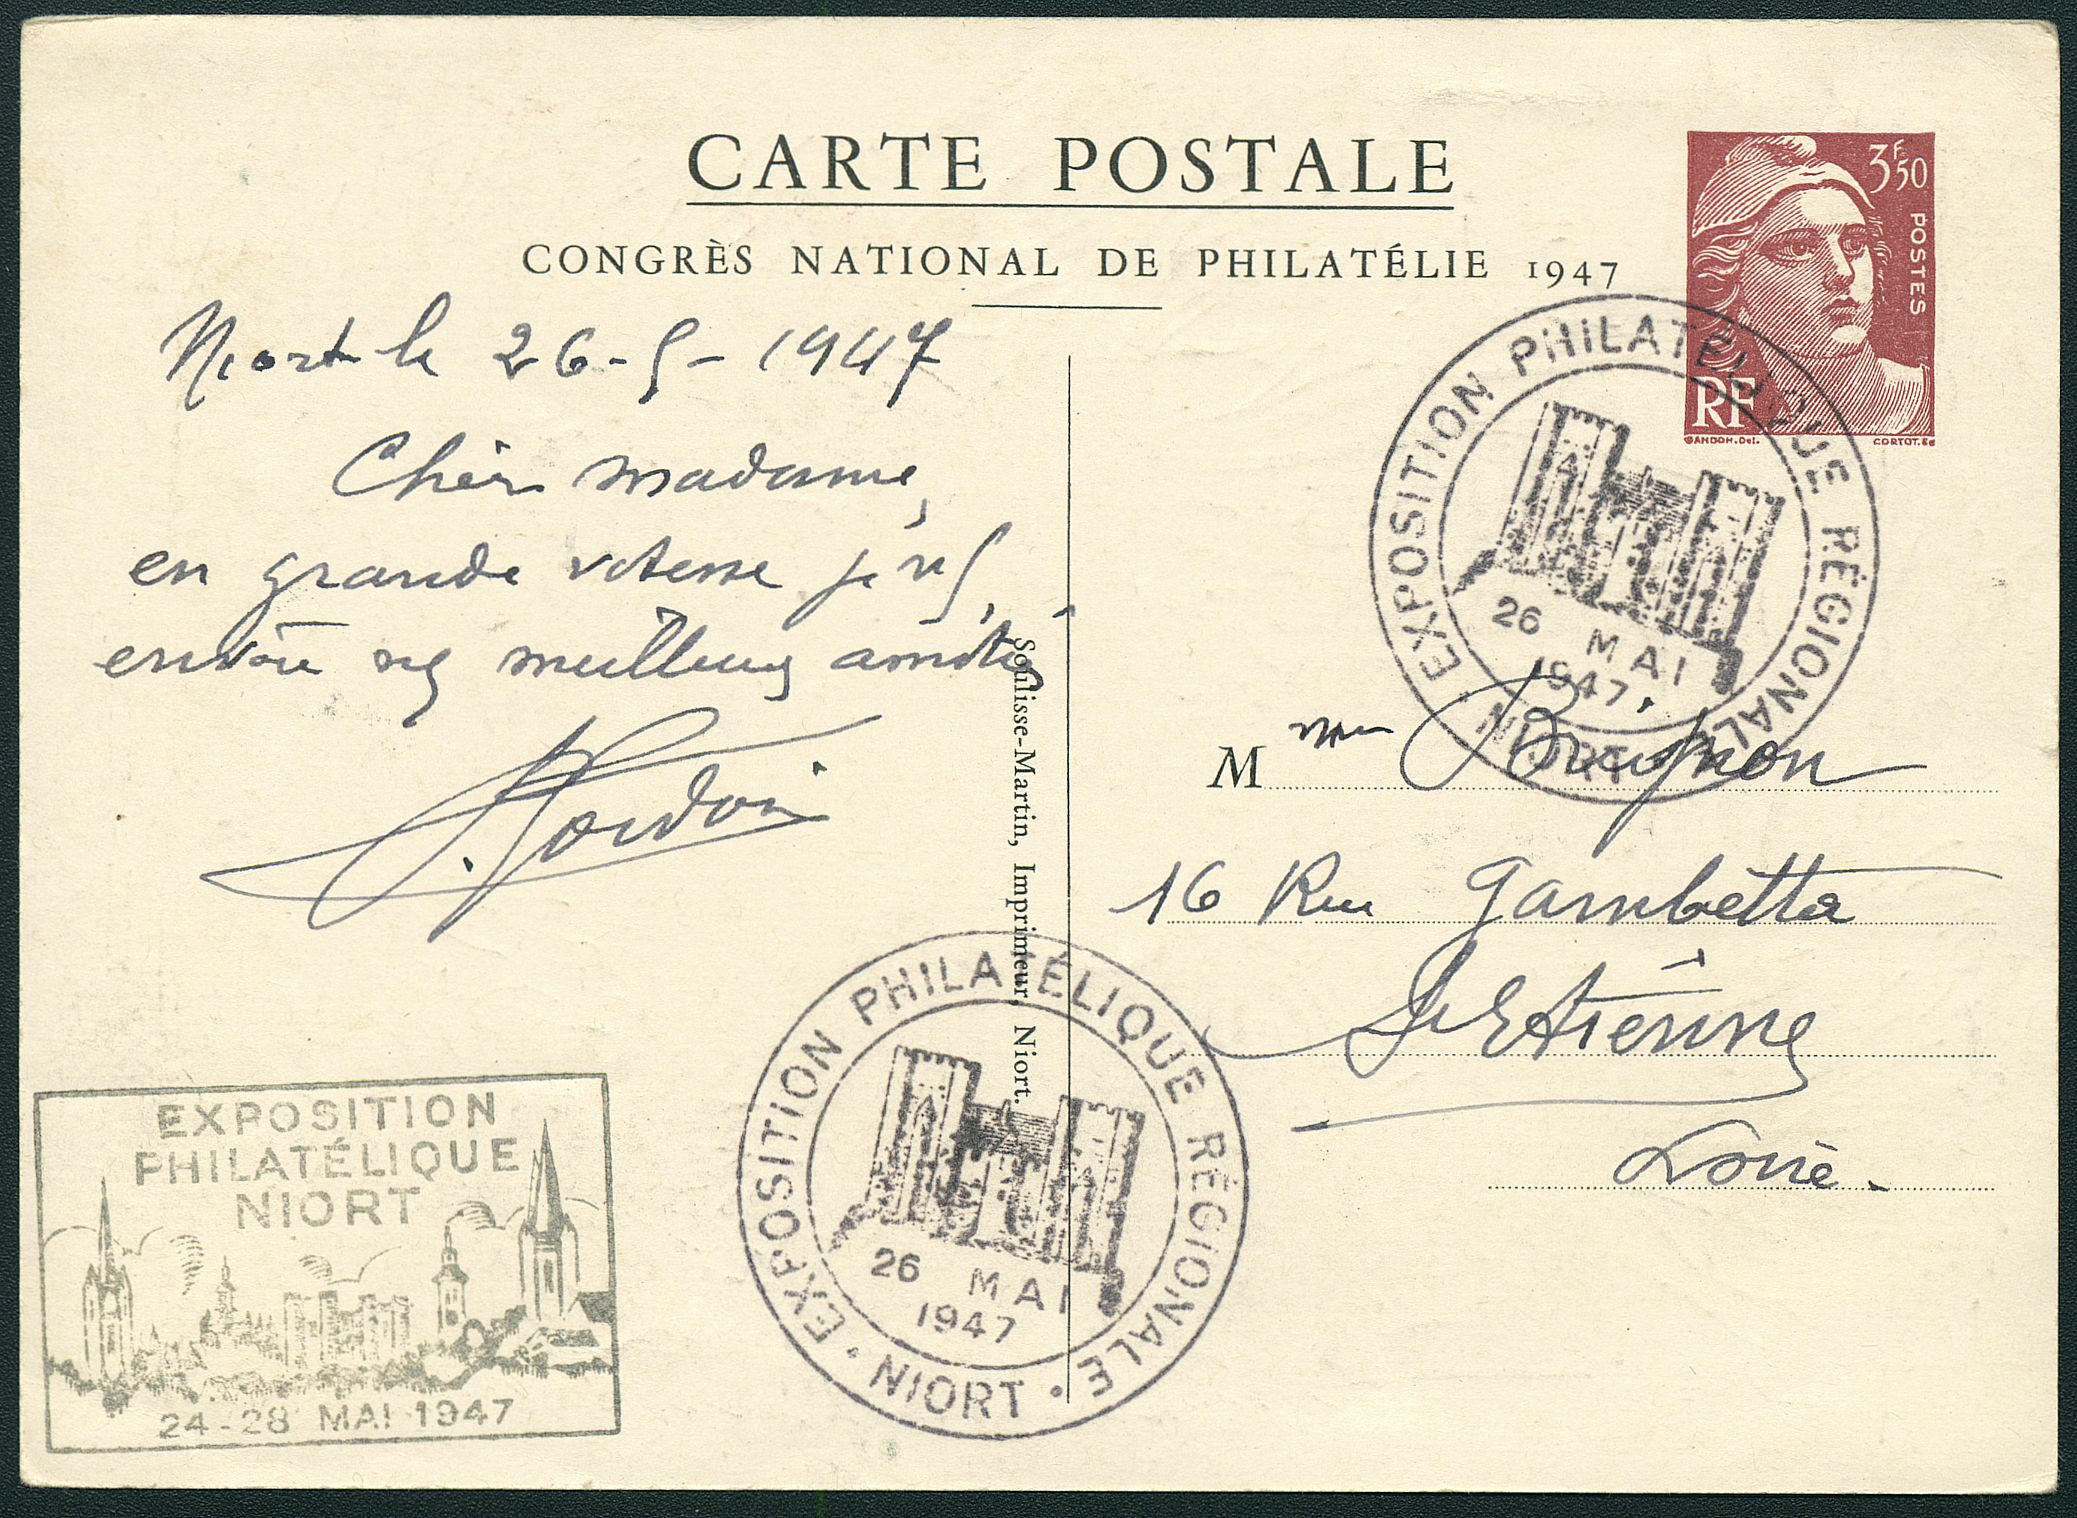 CARTE POSTALE
CONGRÈS NATIONAL DE PHILATÉLIE 1947
3F50
POSTES
RF
GANDON.Del. CORTOT.Sc
Niort le 26-5-1947
Chère madame,
en grande vitesse je vs
envoie mes meilleures amitiés
EXPOSITION PHILATÉLIQUE RÉGIONALE
26 MAI
1947
• NIORT •
Soulisse-Martin, Imprimeur, Niort.
M me
16 Rue Gambetta
St Etienne
Loire.
EXPOSITION PHILATÉLIQUE RÉGIONALE
26 MAI
1947
• NIORT •
EXPOSITION
PHILATÉLIQUE
NIORT
24-28 MAI 1947